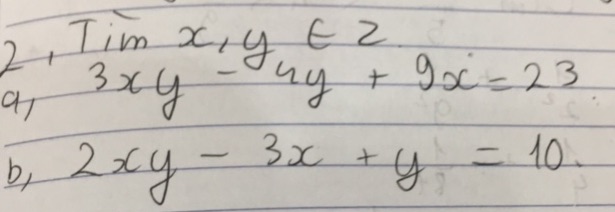 2, Tìm x, y ∈ Z
a, 3xy - 4y + 9x = 23.
b, 2xy - 3x + y = 10.